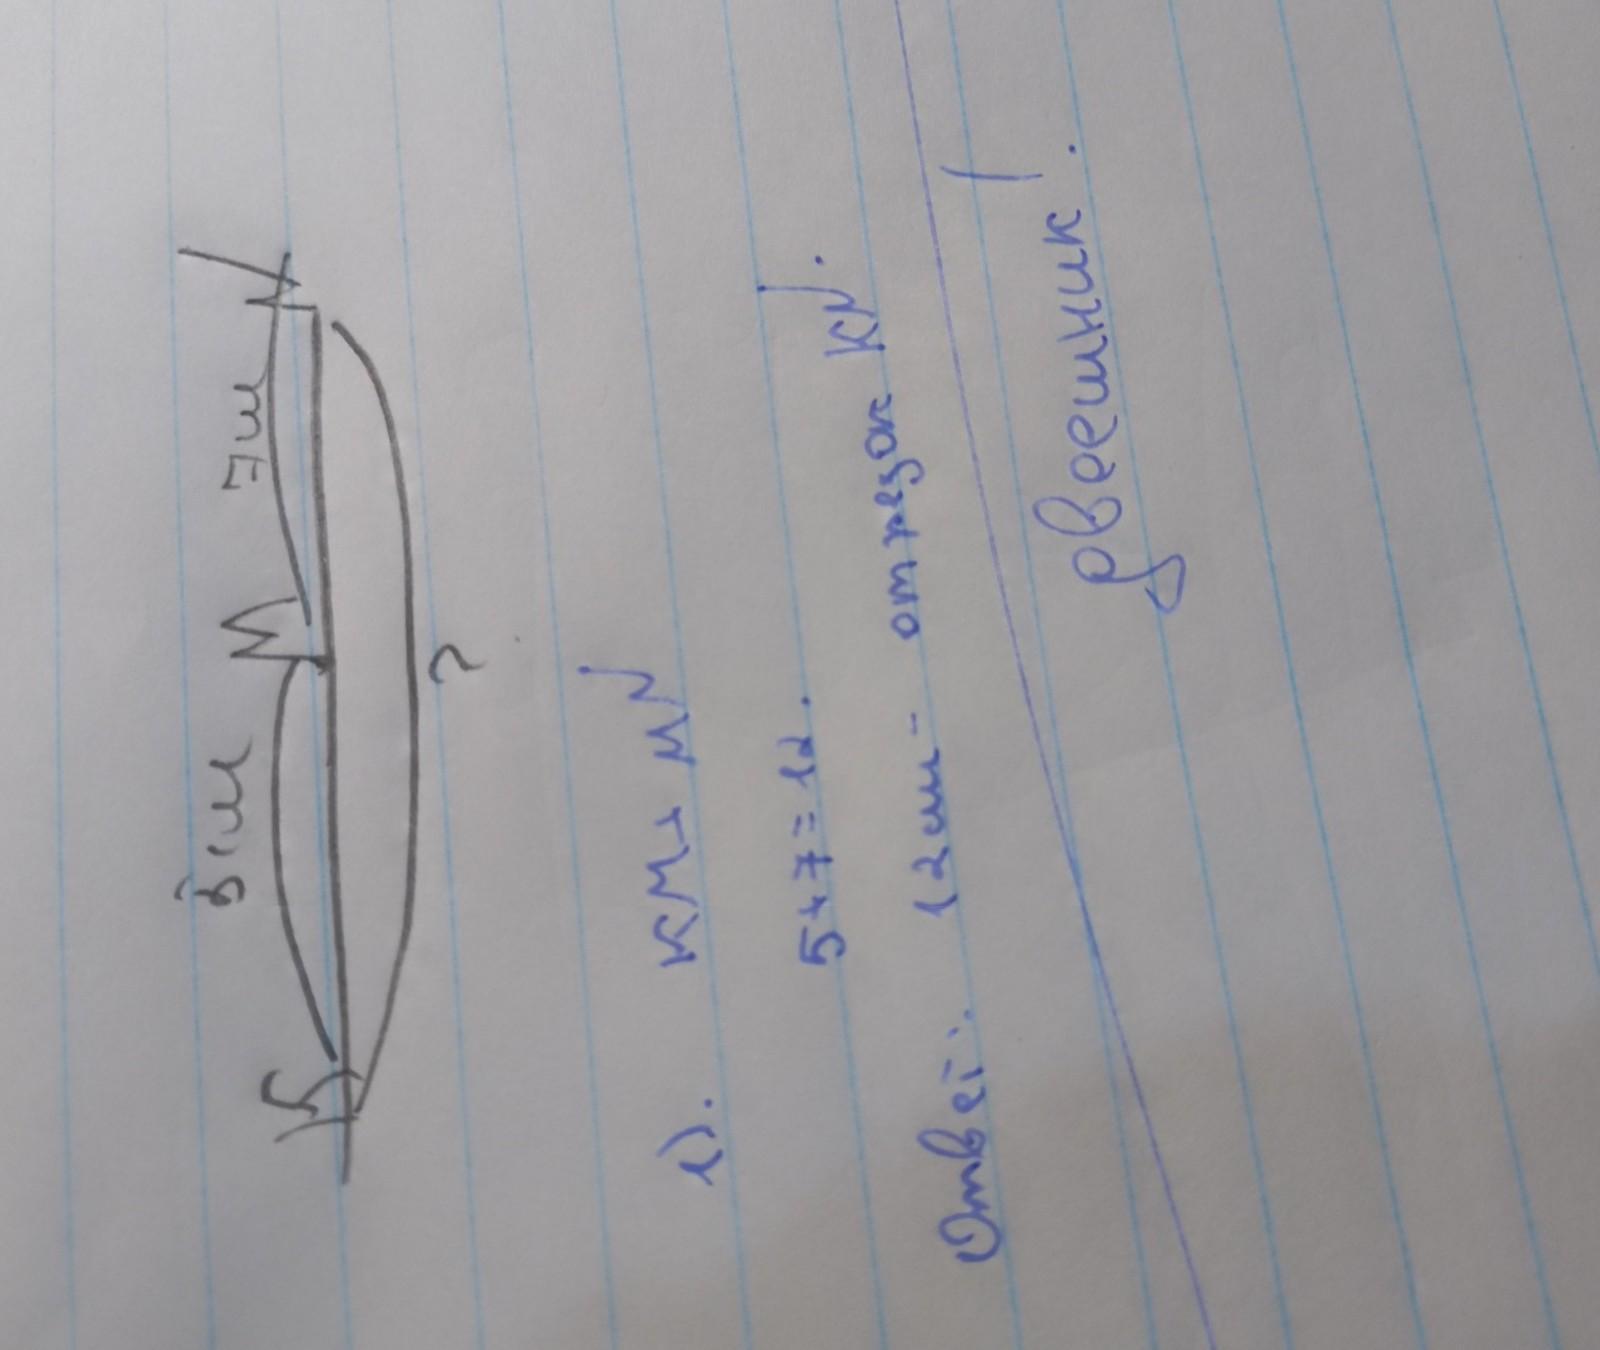 K M N
7см
?
1). KM+ MN
5+7=12.
Ответ: 12см - отрезок KN.
двоешник!.